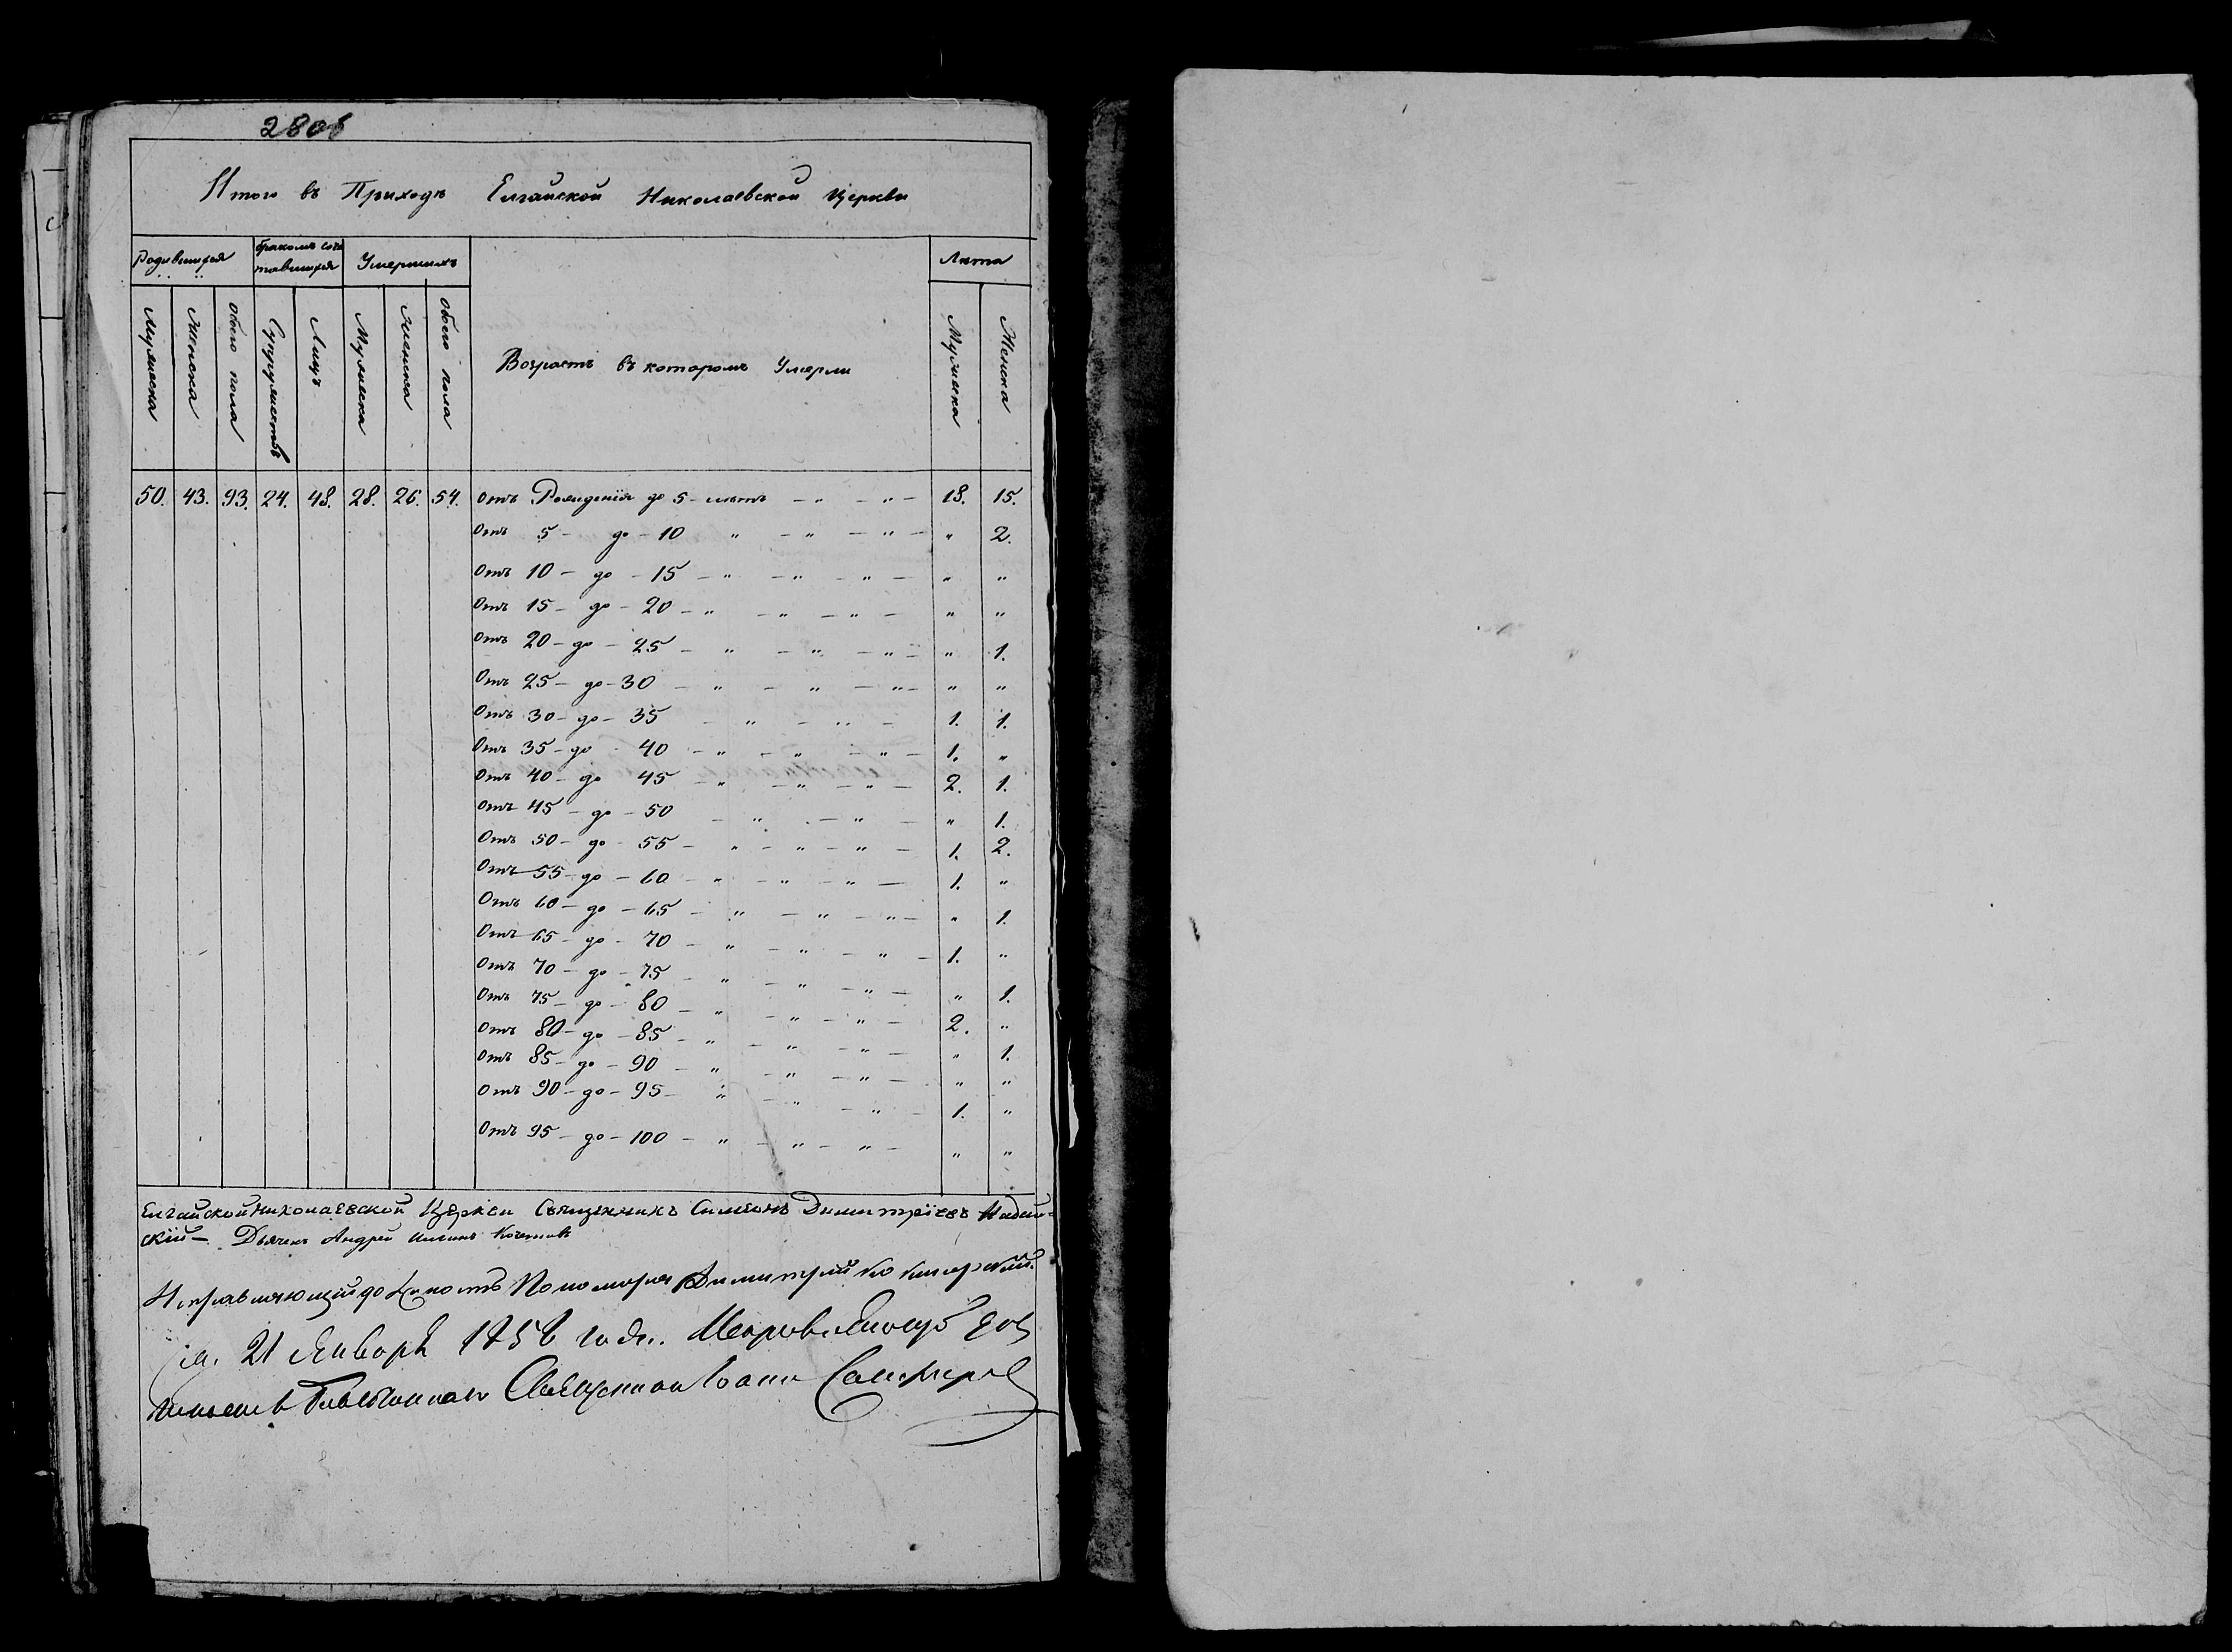 280б
Итого въ Приходѣ Елгайской Николаевской Церкви
Родившихся
бракомъ соче
тавшихся
Умершихъ
Лѣта
Мужеска
Женска
обоего пола
Супружествъ
Лицъ
Мужеска
женска
обоего пола
Возрастъ въ которомъ Умерли
Мужеска
Женска
50. 43. 93. 24. 48. 28. 26. 54. Отъ Рожденія до 5 - лѣтъ - „ - „ - 18. 15.
Отъ 5 - до - 10 „ - „ - „ - „ 2.
Отъ 10 - до - 15 - „ - „ - „ - „ „
Отъ 15 - до - 20 - „ - „ - „ - „ „
Отъ 20 - до - 25 - „ - „ - „ - „ 1.
Отъ 25 - до - 30 - „ - „ - „ - „ „
Отъ 30 - до - 35 - „ - „ - 1. 1.
Отъ 35 - до - 40 - „ - „ - „ - 1. „
Отъ 40 - до 45 - „ - „ - „ - 2. 1.
Отъ 45 - до - 50 - „ - „ - „ 1.
Отъ 50 - до - 55 - „ - „ - „ - 1. 2.
Отъ 55 - до - 60 - „ - „ - „ - 1. „
Отъ 60 - до - 65 - „ - „ - „ - „ 1.
Отъ 65 - до - 70 - „ - „ - „ - 1. „
Отъ 70 - до - 75 - „ - „ - „ - „ 1.
Отъ 75 - до - 80 - „ - „ - „ - 2. „
Отъ 80 - до - 85 - „ - „ - „ - „ 1.
Отъ 85 - до - 90 - „ - „ - „ - „ „
Отъ 90 - до - 95 - „ - „ - „ - 1. „
Отъ 95 - до - 100 - „ - „ - „ - „ „
Елгайской Николаевской Церкви Священникъ Симеонъ Димитріевъ
скій - Дьячекъ Андрей
Исправляющій должность Пономаря Димитрий
21 Января 1858 года.
Священник Іоанн